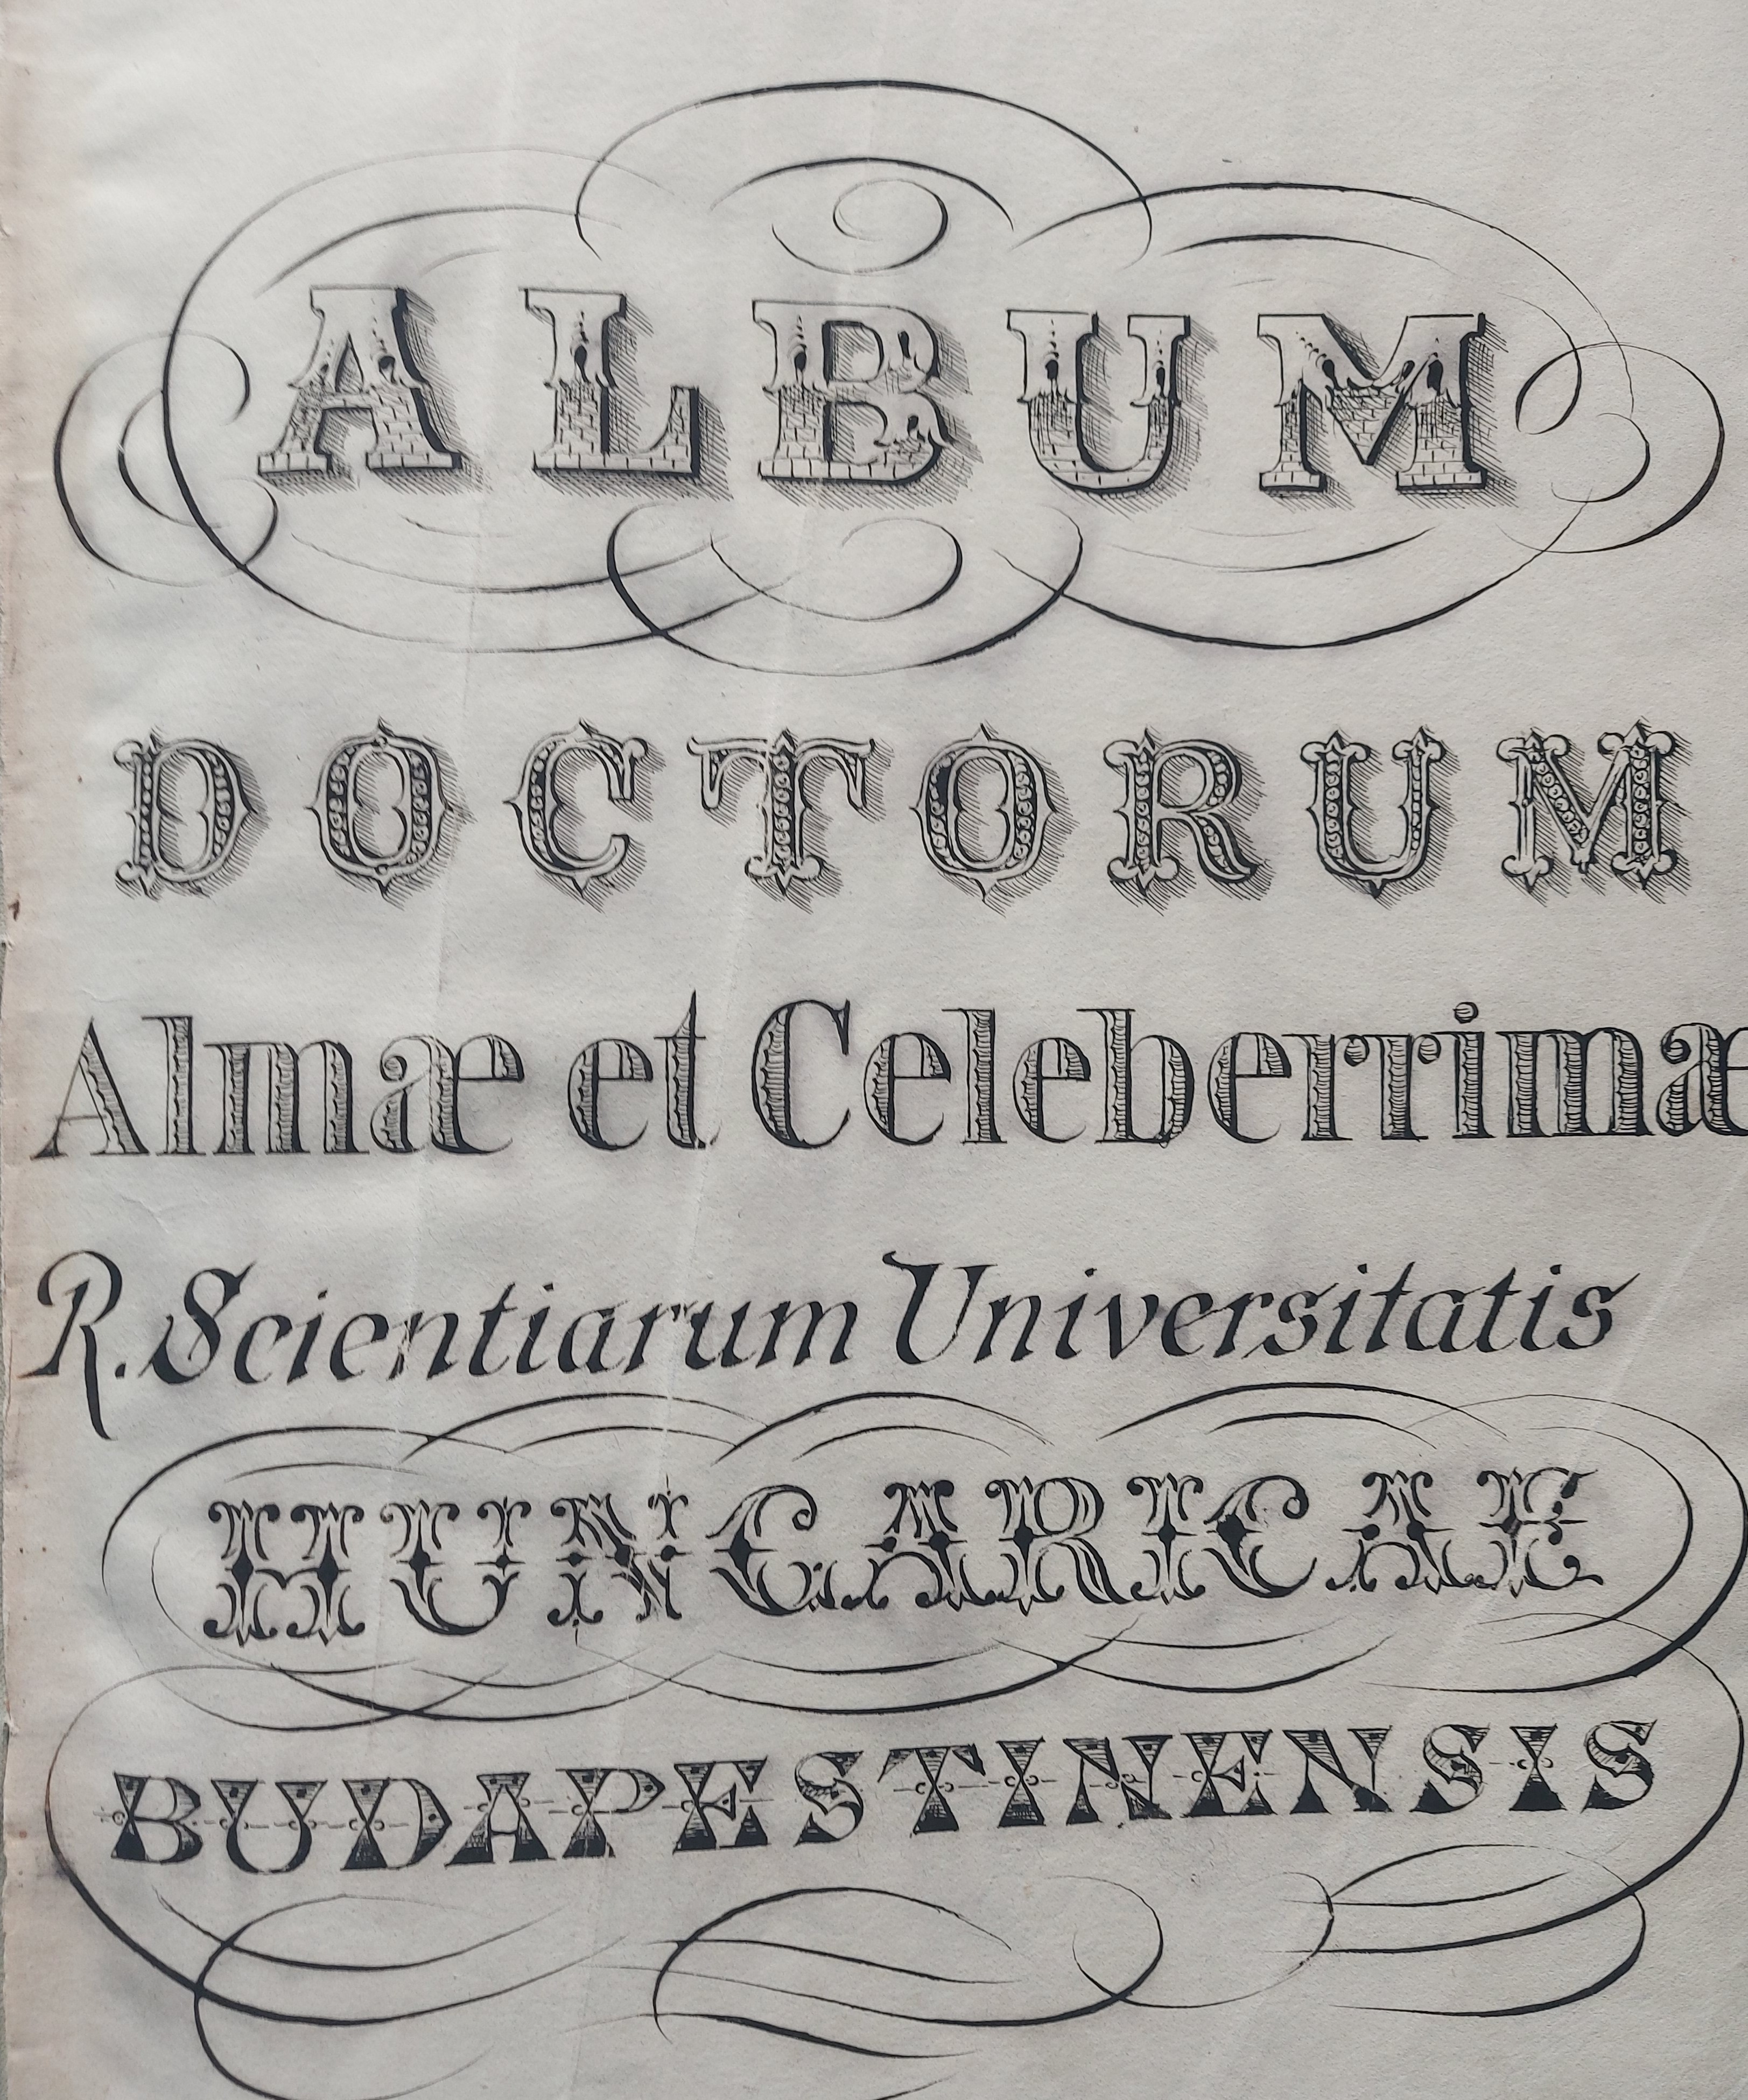 ALBUM
DOCTORUM
Almæ et Celeberrimæ
R. Scientiarum Universitatis
HUNGARICAE
BUDAPESTINENSIS